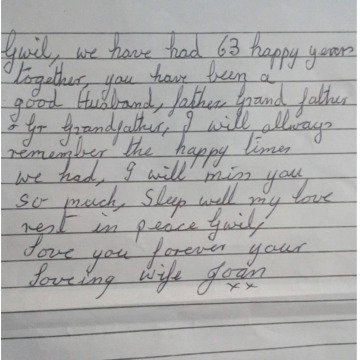 Gwil, we have had 63 happy years
together, you have been a
good Husband, father, Grand father
& Gr Grandfather, I will allways
remember the happy times
we had, I will miss you
so much, Sleep well my love
rest in peace Gwil,
Love you forever your
Loveing wife Joan
xx